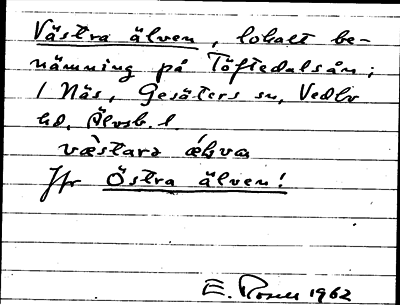 Västra älven, lokalt be-
nämning på Töftedalsån;
i Näs, Gesäters sn, Vedbo
hd, Älvsb. l.
væ̀starə ǽlva
Jfr Östra älven!
E. Rosell 1962